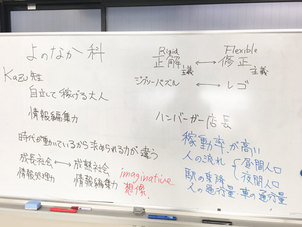 よのなか科
Kazu先生
自立して稼げる大人
情報編集力
時代が動いているから求められる力が違う
成長社会 ↔ 成熟社会
情報処理力 情報編集力
imaginative
想像
Rigid Flexible
正解主義 ↔ 修正主義
ジグソーパズル ↔ レゴ
ハンバーガー店長
稼働率が高い
人の流れ
昼間人口
夜間人口
人の通行量 車の通行量